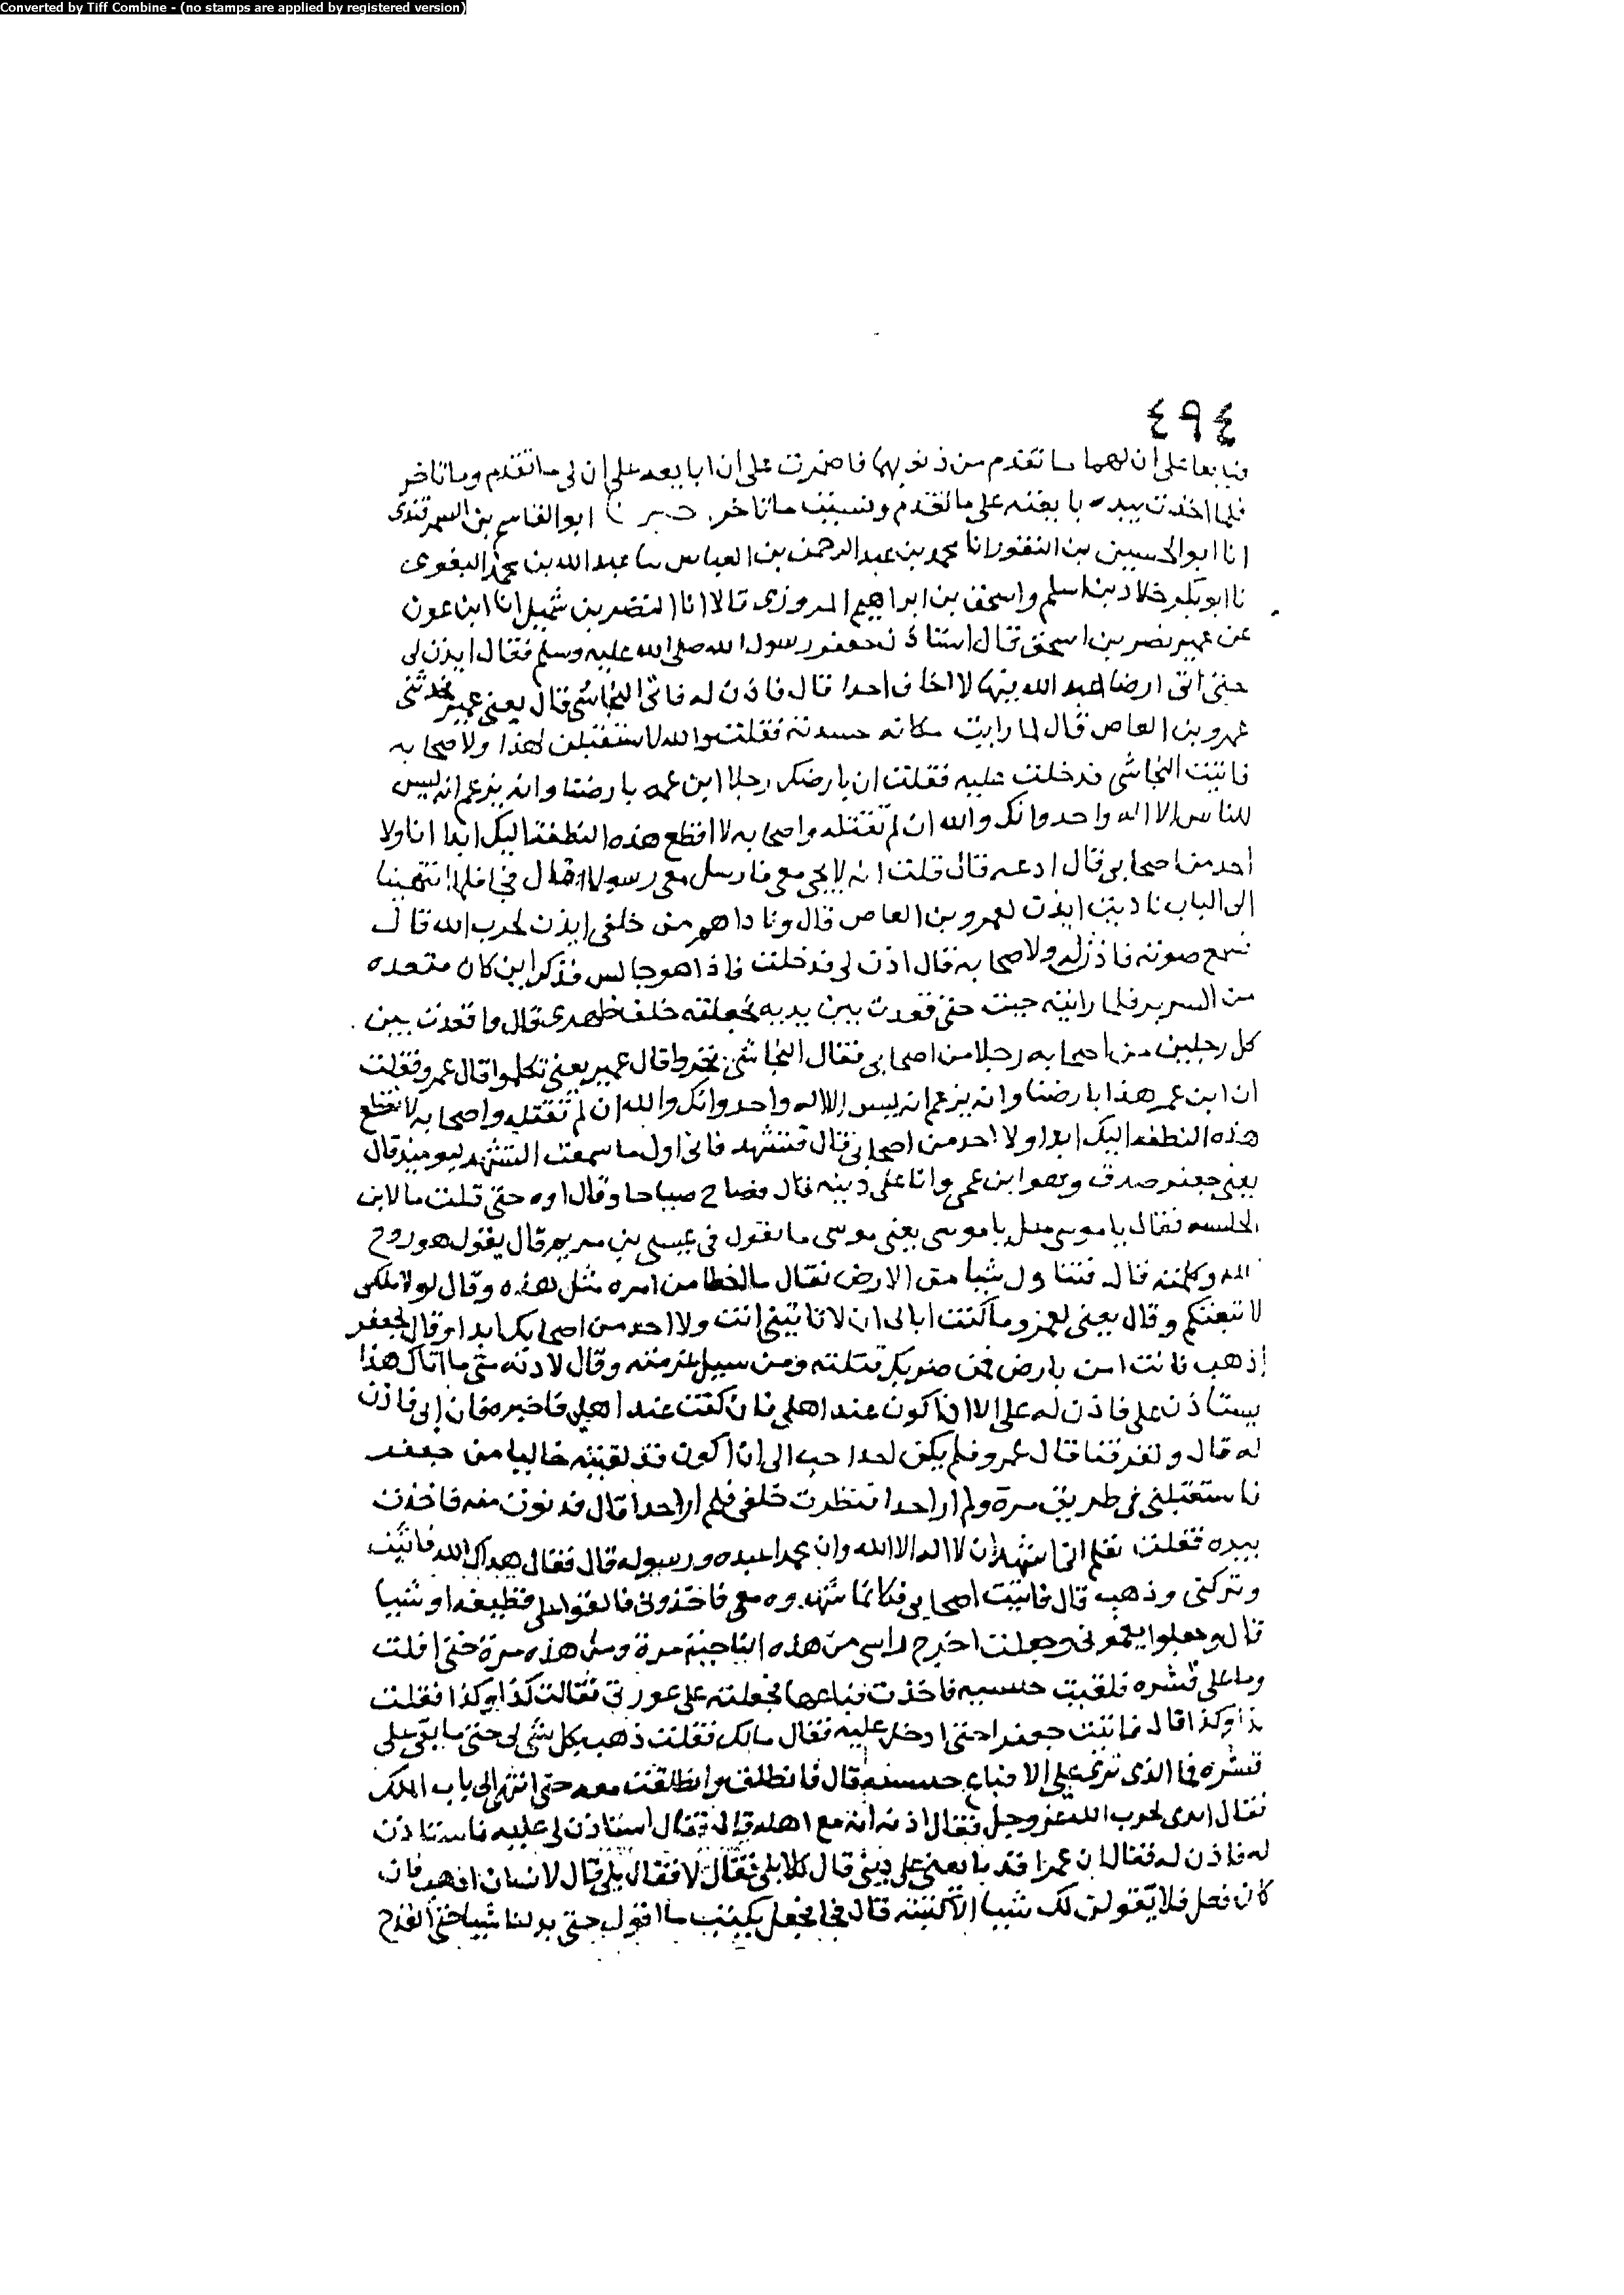 Converted by Tiff Combine - (no stamps are applied by registered version)
٤٩٤
فبايعا على ان لهما ما تقدم من ذنوبهما فاضمرت على ان ابايعه على ان لى ما تقدم وما تاخر
فلما اخذت بيده بايعته على ما تقدم ونسيت ما تاخر ابو القاسم بن السمرقندى
انا ابو الحسين بن النقور انا محمد بن عبد الرحمن بن العباس نا عبد الله بن محمد البغوى
نا ابو بكر خلاد بن اسلم واسحق بن ابراهيم المروزى قالا انا النضر بن شميل انا ابن عون
عن عمير بن اسحق قال استاذن جعفر رسول الله صلى الله عليه وسلم فقال ايذن لى
حتى اتى ارضا اعبد الله فيها لا اخاف احدا قال فاذن له فاتى النجاشى قال يعنى عمير فحدثنى
عمرو بن العاص قال لما رايت مكانه حسدته فقلت والله لاستقتلن لهذا ولاصحابه
فاتيت النجاشى فدخلت عليه فقلت ان بارضك رجلا ابن عمه بارضنا وانه يزعم انه ليس
للناس الا اله واحد وانك والله ان لم تقتله واصحابه لا اقطع هذه النطفة اليك ابدا انا ولا
احد من اصحابى قال ادعه قال قلت انه لا يجى معى فارسل معى رسولا قال فجا فلما انتهينا
الى الباب ناديت ايذن لعمرو بن العاص قال ونادا هو من خلفى ايذن لحزب الله قال
فسمع صوته فاذن له ولاصحابه قال اذن لى فدخلت فاذا هو جالس فذكر اين كان مقعده
من السرير فلما رايته جيت حتى قعدت بين يديه فجعلته خلف ظهرى قال واقعدت بين
كل رجلين من اصحابه رجلا من اصحابى فقال النجاشى نخروا قال عمير يعنى تكلموا قال عمرو فقلت
ان ابن عم هذا بارضنا وانه يزعم انه ليس الا اله واحد وانك والله ان لم تقتله واصحابه لا نقطع
هذه النطفة اليك ابدا ولا احد من اصحابى قال فتشهد فانى اول ما سمعت التشهد ليوميذ قال
يعنى جعفر صدق وهو ابن عمى وانا على دينه قال فصاح صياحا وقال اوه حتى قلت ما لابن
الحبشية فقال ياموسى مثل ياموسى يعنى موسى ما يقول فى عيسى بن مريم قال يقول هو روح
الله وكلمته قال فتناول شيا من الارض فقال ما اخطا من امره مثل هذه وقال لولا ملكى
لاتبعتكم وقال يعنى لعمرو ما كنت ابالى ان لا تاتينى انت ولا احد من اصحابك ابدا وقال لجعفر
اذهب فانت امن بارض فمن ضربك قتلته ومن سبك غرمته وقال لاذنه متى ما اتاك هذا
يستاذن على فاذن له على الا ان اكون عند اهلى فان كنت عند اهلى فاخبره فان ابى فاذن
له قال وتفرقنا قال عمرو فلم يكن احد احب الى ان اكون قد لقيته خاليا من جعفر
فاستقبلنى فى طريق مرة ولم ار احدا فنظرت خلفى فلم ار احدا قال فدنوت منه فاخذت
بيده فقلت تعلم انى اشهد ان لا اله الا الله وان محمدا عبده ورسوله قال فقال هداك الله فاثبت
وتركنى وذهب قال فاتيت اصحابى فكانما شهدوه معى فاخذونى فالقوا على قطيفة او شيا
قال وجعلوا يغمونى وجعلت اخرج راسى من هذه الناحية مرة ومن هذه مرة حتى افلت
وما على قشره فلقيت حبشية فاخذت قناعها فجعلته على عورتى فقالت كذا وكذا فقلت
كذا وكذا قال فاتيت جعفرا حتى ادخل عليه فقال مالك فقلت ذهب بكل شى لى حتى ما بقى على
قشره فما الذى ترى على الا قناع حبشية قال فانطلق وانطلقت معه حتى انتهى الى باب الملك
فقال ايذن لحزب الله عز وجل فقال اذنه انه مع اهله قال فقال استاذن لى عليه فاستاذن
له فاذن له فقال ان عمرا قد بايعنى على دينى قال كلا بلى فقال لا فقال بلى قال لانسان اذهب فان
كان فعل فلا يقولن لك شيا الا كتبته قال فجا فجعل يكتب ما اقول حتى ما تركنا شيا حتى القدح